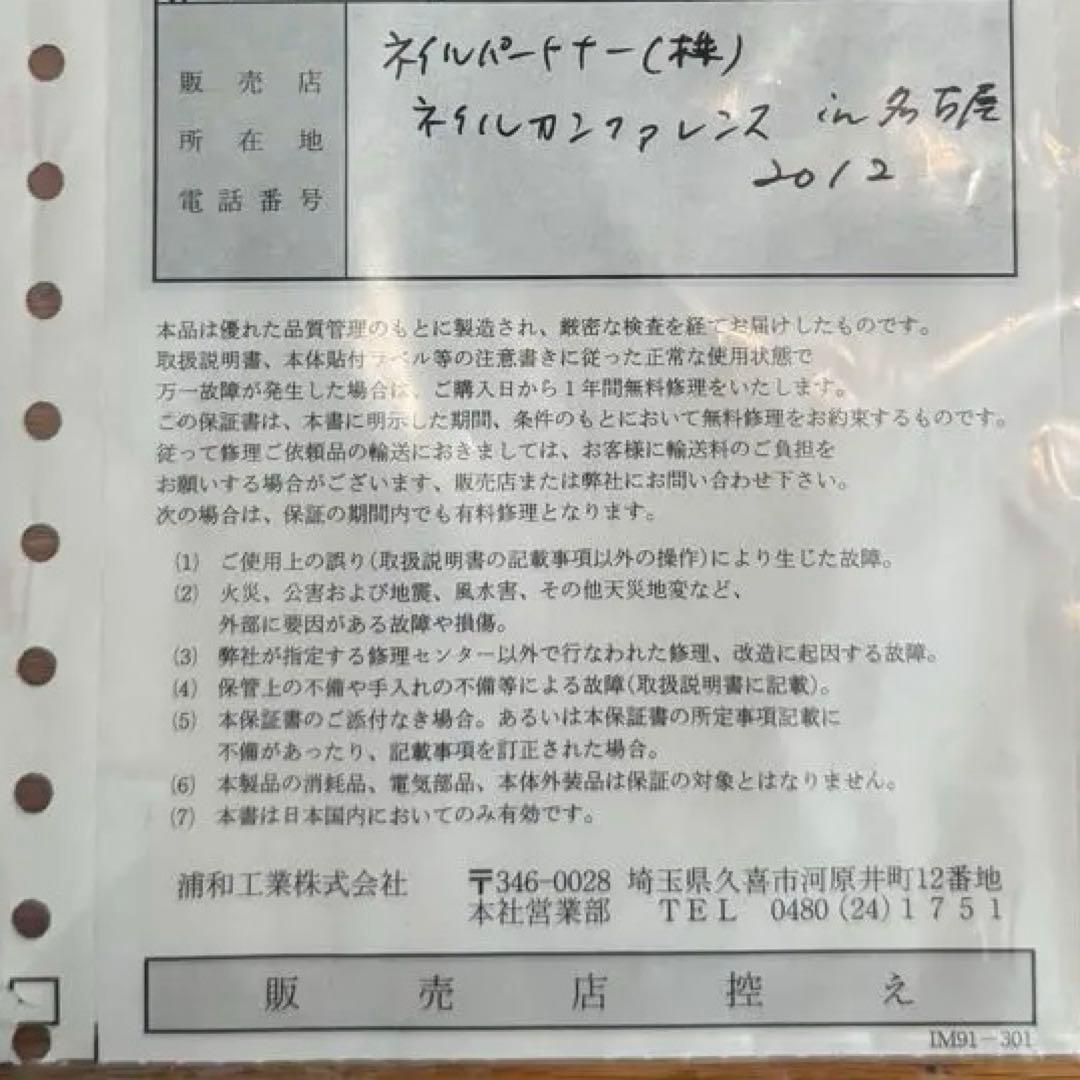 販売店
所在地
電話番号
ネイルパートナー(株)
ネイルカンファレンス in 名古屋
2012
本品は優れた品質管理のもとに製造され、厳密な検査を経てお届けしたものです。
取扱説明書、本体貼付ラベル等の注意書きに従った正常な使用状態で
万一故障が発生した場合は、ご購入日から1年間無料修理をいたします。
この保証書は、本書に明示した期間、条件のもとにおいて無料修理をお約束するものです。
従って修理ご依頼品の輸送におきましては、お客様に輸送料のご負担を
お願いする場合がございます、販売店または弊社にお問い合わせ下さい。
次の場合は、保証の期間内でも有料修理となります。
(1) ご使用上の誤り(取扱説明書の記載事項以外の操作)により生じた故障。
(2) 火災、公害および地震、風水害、その他天災地変など、
外部に要因がある故障や損傷。
(3) 弊社が指定する修理センター以外で行なわれた修理、改造に起因する故障。
(4) 保管上の不備や手入れの不備等による故障(取扱説明書に記載)。
(5) 本保証書のご添付なき場合。あるいは本保証書の所定事項記載に
不備があったり、記載事項を訂正された場合。
(6) 本製品の消耗品、電気部品、本体外装品は保証の対象とはなりません。
(7) 本書は日本国内においてのみ有効です。
浦和工業株式会社 〒346-0028 埼玉県久喜市河原井町12番地
本社営業部 TEL 0480(24)1751
販売店控え
IM91-301